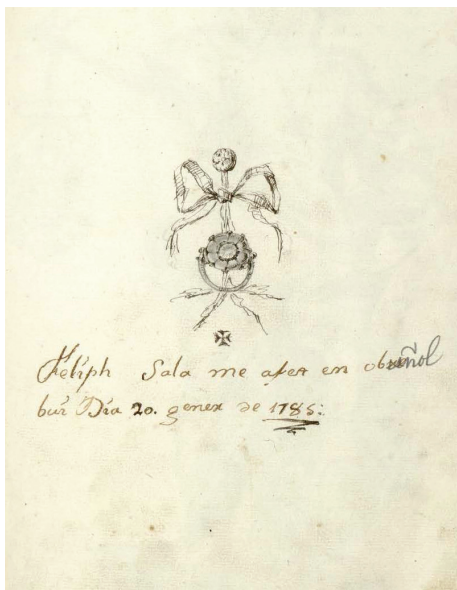 Feliph Sala me afer en
bui Dia 20. gener de 1785: